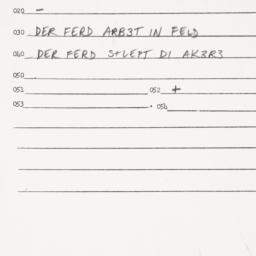 020 —
030 DER FERD ARB3T IN FELD
040 DER FERD SHLEPT DI AK3R3
050
051 052 +
053 . 054